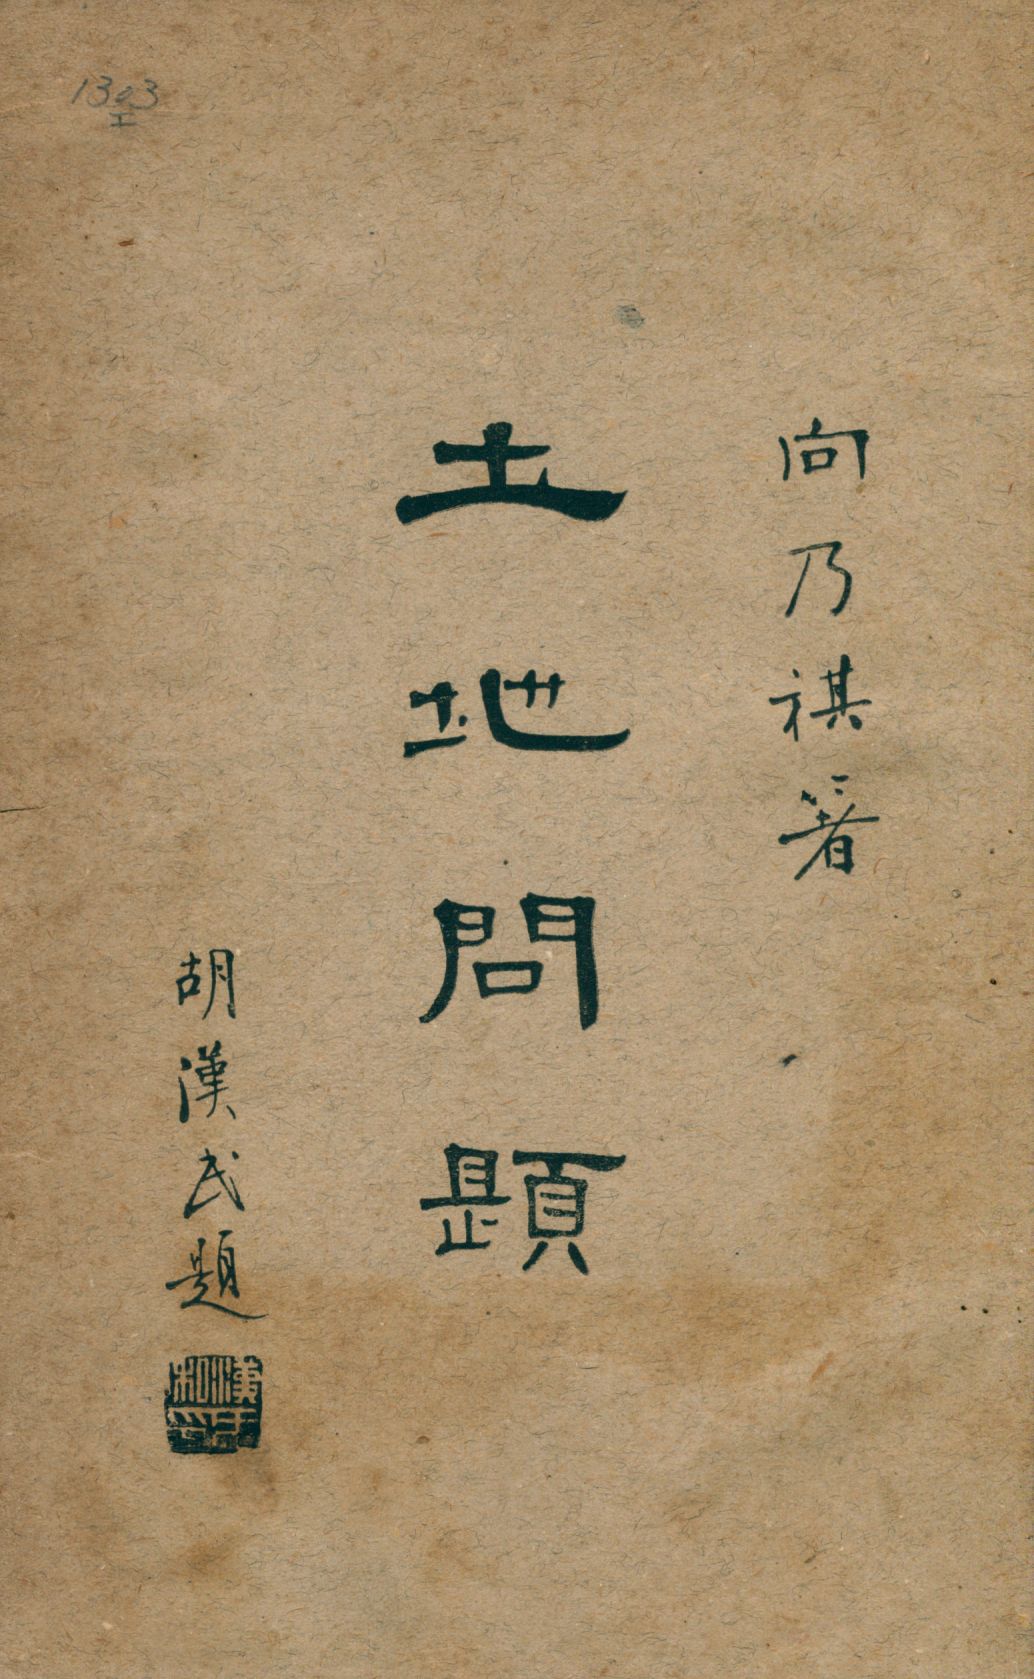 向乃祺著
土地問題
胡漢民題
1303